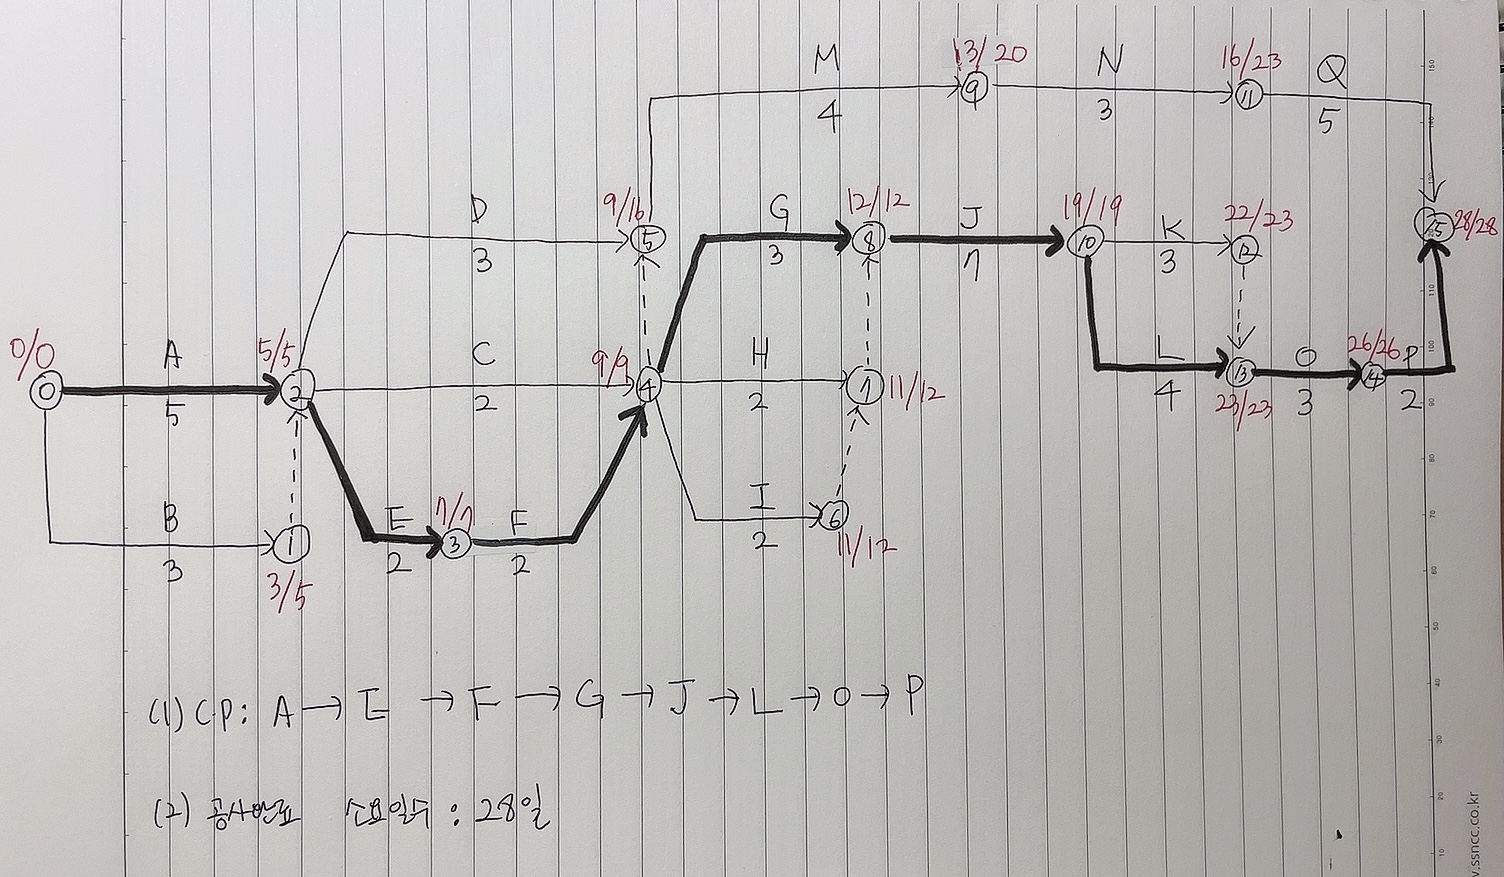 M
13/20
N
16/23
Q
9
11
4
3
5
D
9/16
G
12/12
J
19/19
K
22/23
5
8
10
12
15
28/28
3
3
7
3
0/0
A
5/5
C
9/9
H
L
O
26/26
P
0
2
4
7
11/12
13
14
5
2
2
4
23/23
3
2
B
E
7/7
F
I
1
3
6
3
2
2
2
11/12
3/5
(1) CP: A → E → F → G → J → L → O → P
(2) 공사완료 소요일수 : 28일
150
140
130
120
110
100
90
80
70
60
50
40
30
20
10
.ssncc.co.kr